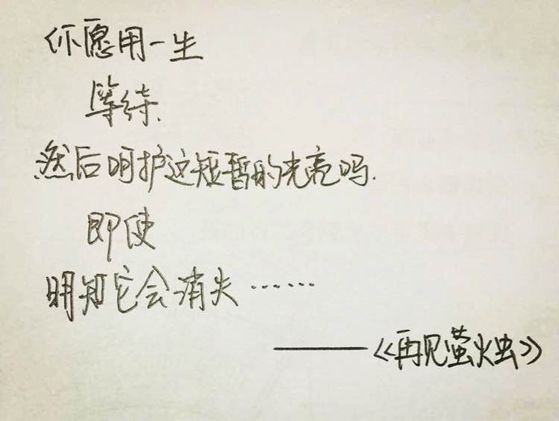 你愿用一生
等待.
然后呵护这短暂的光亮吗.
即使
明知它会消失……
——《再见萤火虫》